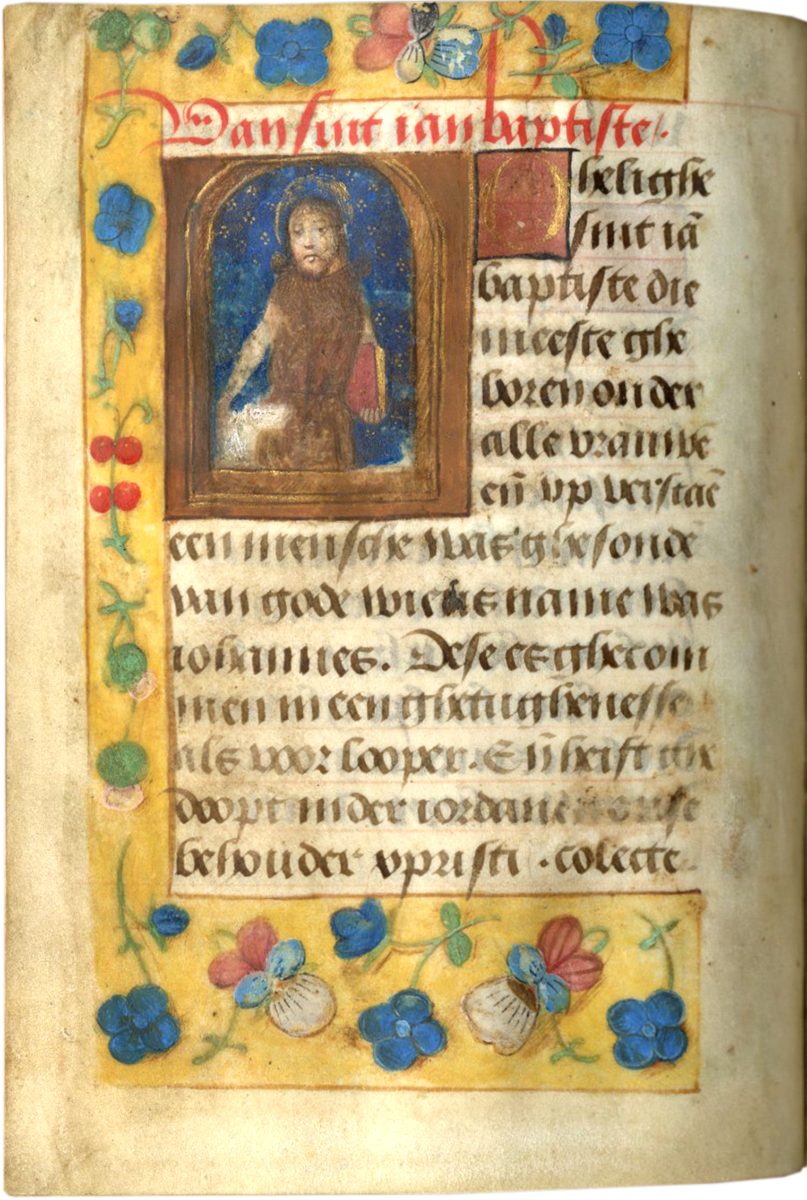 Van sint ian baptiste.
O helighe
sint iā
baptiste die
meeste ghe
boren onder
alle vrauwe
eñ vp verstaē
een mensche was ghesonde
van gode wiens name was
iohannes. Dese es ghecom
men in een ghetughenesse
als voor looper. Eñ heift ghe
doopt in der iordane onse
behouder vpristi . colecte